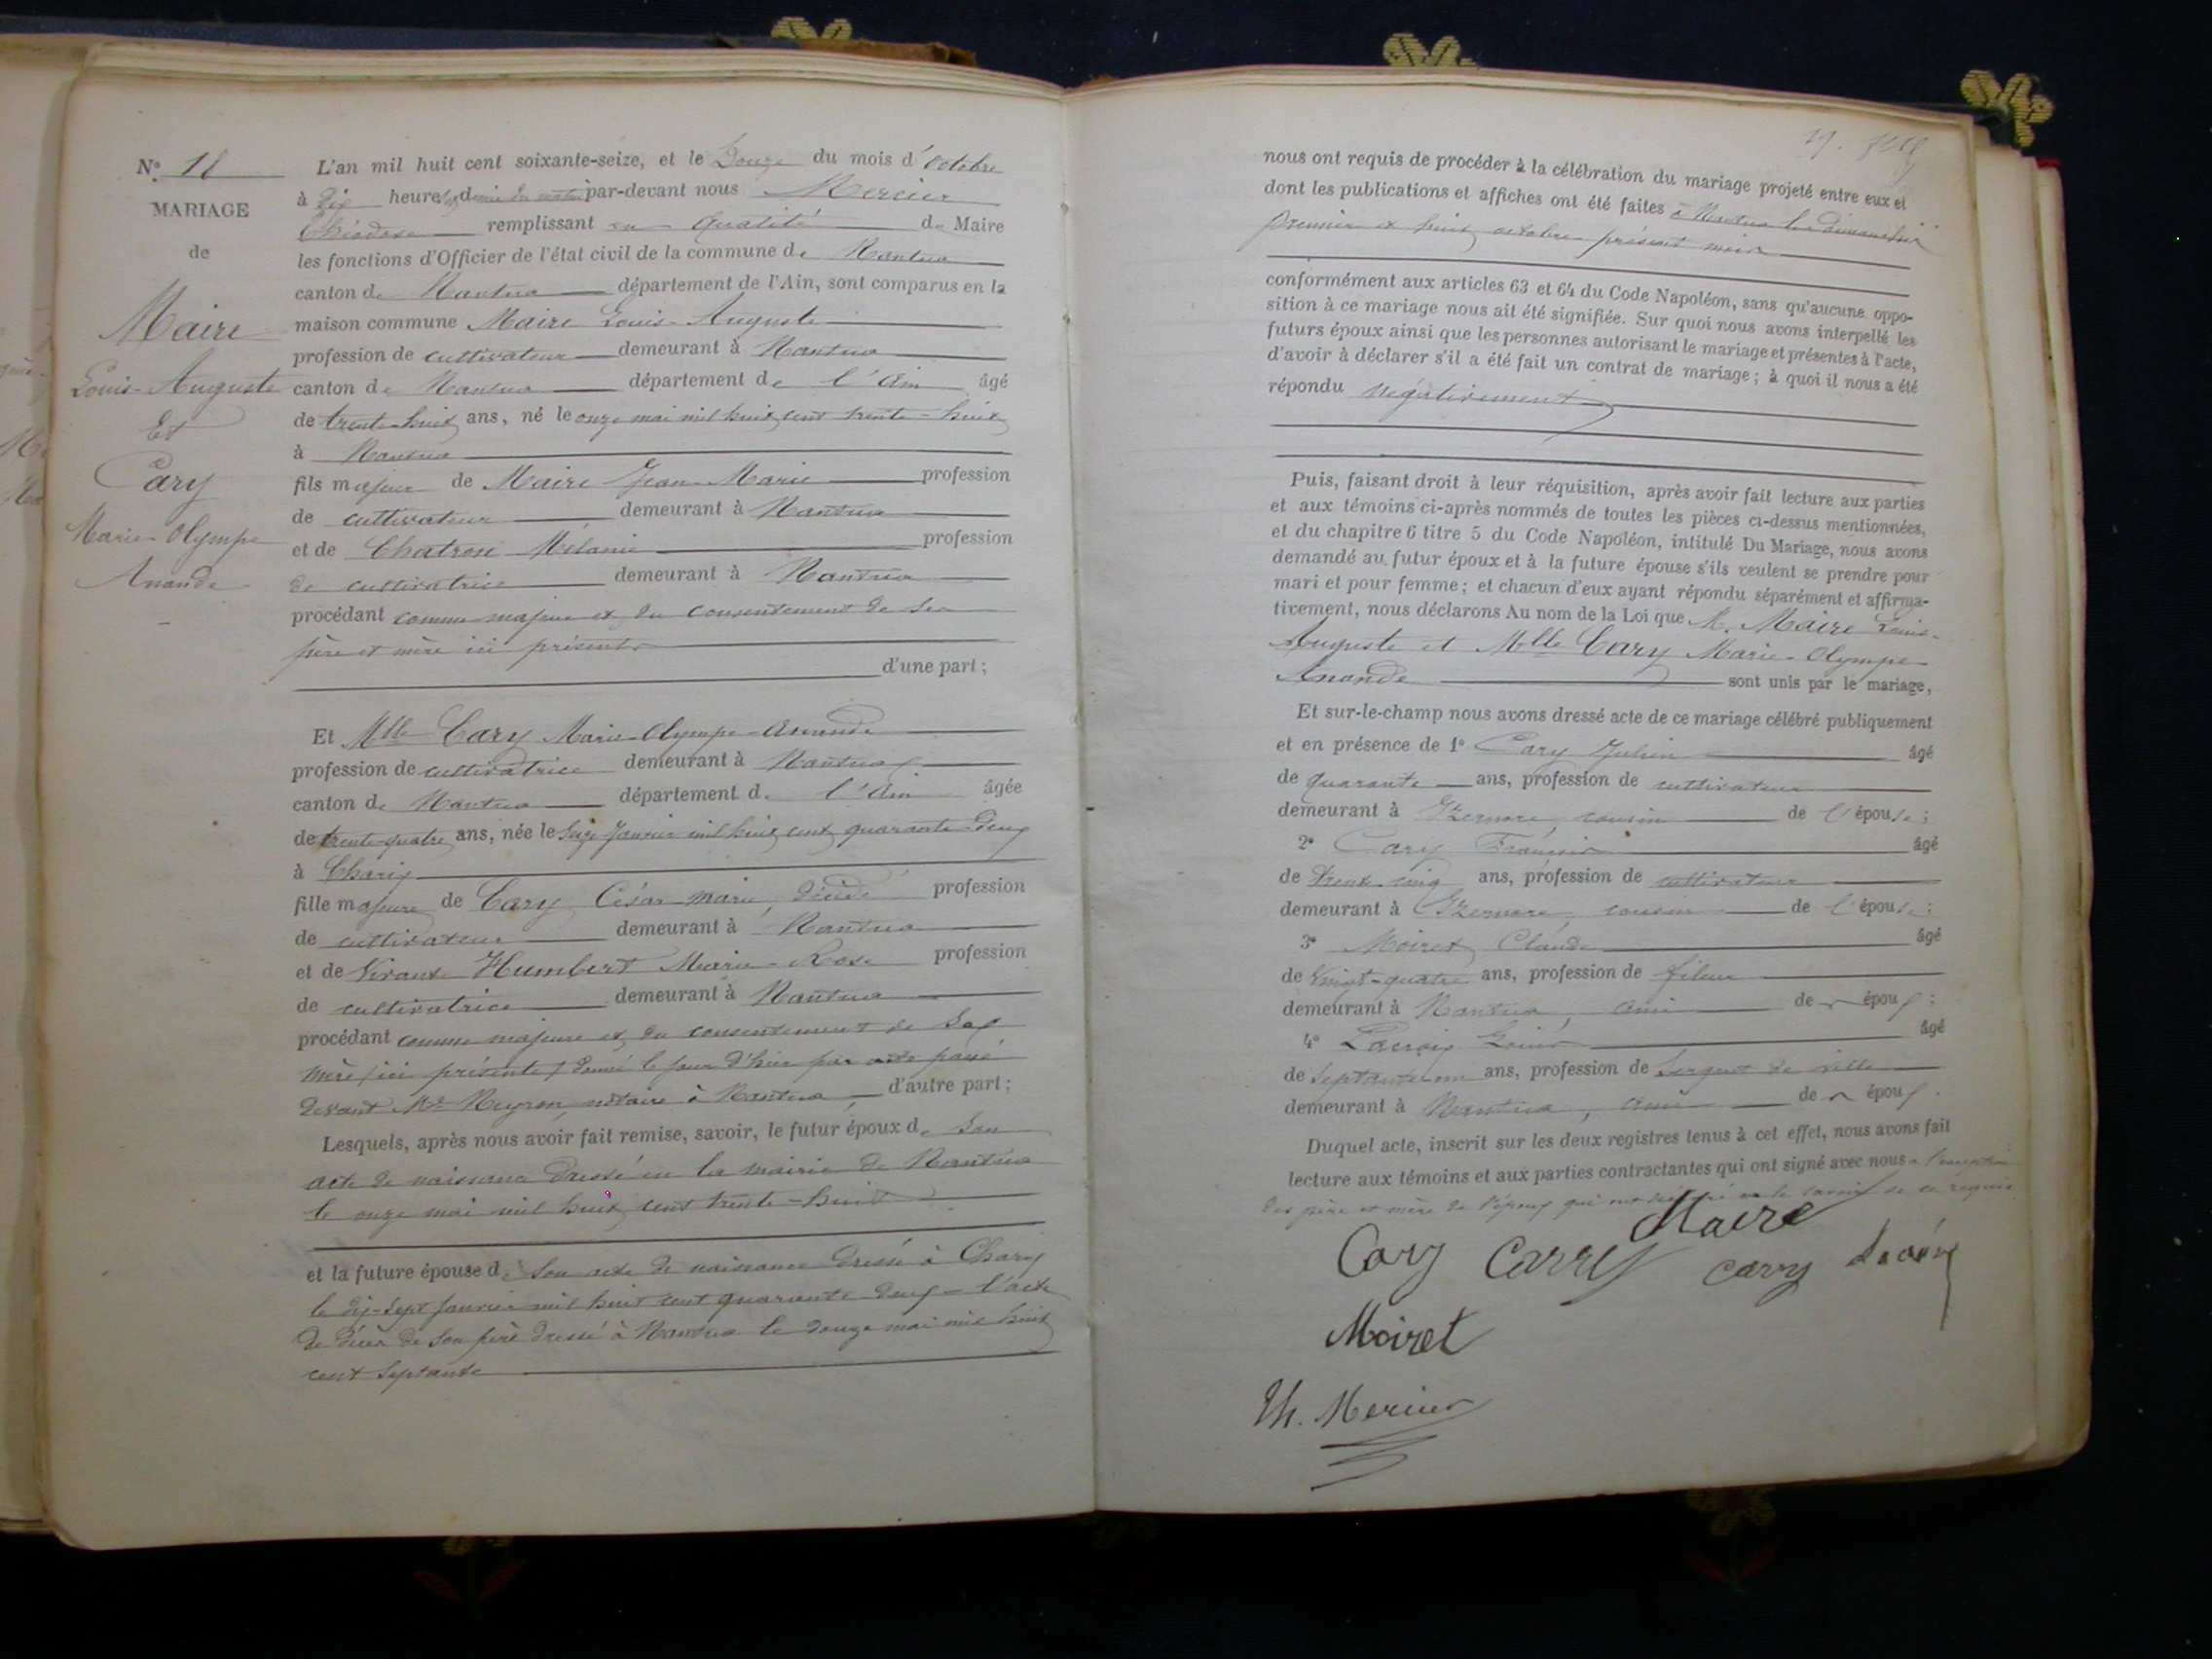 N° 18
MARIAGE
de
Maire
Louis-Auguste
Et
Cary
Marie-Olympe
Anande
L'an mil huit cent soixante-seize, et le Douze du mois d'octobre
à dix heures et demie du matin par-devant nous Mercier
Théodose remplissant en qualité de Maire
les fonctions d'Officier de l'état civil de la commune de Nantua
canton de Nantua département de l'Ain, sont comparus en la
maison commune Maire Louis-Auguste
profession de cultivateur demeurant à Nantua
canton de Nantua département de l'Ain âgé
de trente-huit ans, né le onze mai mil huit cent trente-huit
à Nantua
fils majeur de Maire Jean-Marie profession
de cultivateur demeurant à Nantua
et de Chatron Mélanie profession
de cultivatrice demeurant à Nantua
procédant comme majeur et du consentement de ses
père et mère ici présents
d'une part;
Et Mlle Cary Marie-Olympe-Anande
profession de cultivatrice demeurant à Nantua
canton de Nantua département de l'Ain âgée
de trente-quatre ans, née le Seize Janvier mil huit cent quarante-deux
à Charix
fille majeure de Cary César-Marie, décédé profession
de cultivateur demeurant à Nantua
et de vivante Humbert Marie-Rose profession
de cultivatrice demeurant à Nantua
procédant comme majeure et du consentement de sa
mère (ici présente) donné le jour d'hier par acte passé
devant Me Neyron notaire à Nantua d'autre part;
Lesquels, après nous avoir fait remise, savoir, le futur époux de son
acte de naissance dressé en la mairie de Nantua
le onze mai mil huit cent trente-huit
et la future épouse de son acte de naissance dressé à Charix
le dix-sept Janvier mil huit cent quarante-deux - l'acte
de décès de son père dressé à Nantua le douze mai mil huit
cent septante
nous ont requis de procéder à la célébration du mariage projeté entre eux et
dont les publications et affiches ont été faites à Nantua les dimanches
premier et huit octobre présent mois
conformément aux articles 63 et 64 du Code Napoléon, sans qu'aucune oppo-
sition à ce mariage nous ait été signifiée. Sur quoi nous avons interpellé les
futurs époux ainsi que les personnes autorisant le mariage et présentes à l'acte,
d'avoir à déclarer s'il a été fait un contrat de mariage; à quoi il nous a été
répondu négativement
Puis, faisant droit à leur réquisition, après avoir fait lecture aux parties
et aux témoins ci-après nommés de toutes les pièces ci-dessus mentionnées,
et du chapitre 6 titre 5 du Code Napoléon, intitulé Du Mariage, nous avons
demandé au futur époux et à la future épouse s'ils veulent se prendre pour
mari et pour femme; et chacun d'eux ayant répondu séparément et affirma-
tivement, nous déclarons Au nom de la Loi que M. Maire Louis-
Auguste et Mlle Cary Marie-Olympe-
Anande sont unis par le mariage,
Et sur-le-champ nous avons dressé acte de ce mariage célébré publiquement
et en présence de 1° Cary Julien âgé
de quarante ans, profession de cultivateur
demeurant à Izernore, cousin de l'épouse;
2° Cary François âgé
de trente-cinq ans, profession de cultivateur
demeurant à Izernore, cousin de l'épouse;
3° Moiret Claude âgé
de vingt-quatre ans, profession de fileur
demeurant à Nantua, ami de époux;
4° Lacroix Louis âgé
de septante-un ans, profession de sergent de ville
demeurant à Nantua, ami de époux.
Duquel acte, inscrit sur les deux registres tenus à cet effet, nous avons fait
lecture aux témoins et aux parties contractantes qui ont signé avec nous à l'exception
des père et mère de l'époux qui ont déclaré ne le savoir de ce requis
Maire
Cary Carry Carry Lacroix
Moiret
Th. Mercier